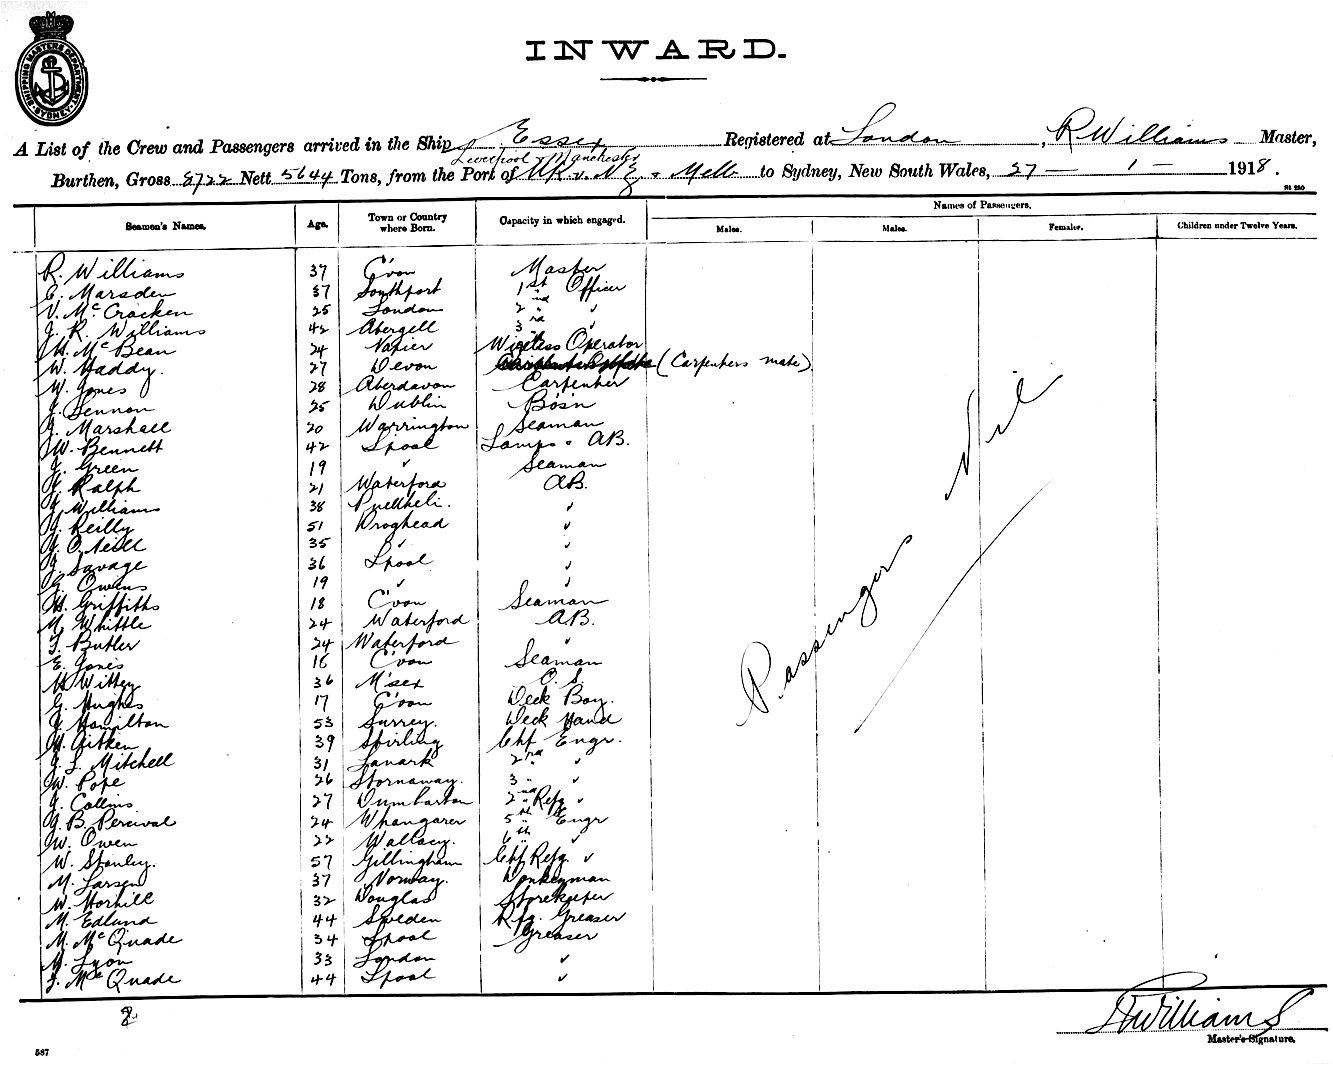 SHIPPING MASTER'S DEPARTMENT SYDNEY
INWARD.
A List of the Crew and Passengers arrived in the Ship Essex Registered at London, R Williams Master,
Liverpool & Manchester
Burthen, Gross 8722 Nett 5644 Tons, from the Port of U.K. v. N.Z. & Melb to Sydney, New South Wales, 27 — 1 — 1918.
Names of Passengers.
Seamen's Names. Age. Town or Country where Born. Capacity in which engaged. Males. Males. Females. Children under Twelve Years.
R. Williams 37 C'von Master
E. Marsden 37 Southport 1st Officer
V. McCracken 25 London 2nd "
J. R. Williams 42 Abergell 3rd "
McBean 24 Napier Wireless Operator
W. Haddy. 27 Devon (Carpenters mate)
W. Jones 28 Aberdavon Carpenter
J. Lennon 25 Dublin Bos'n
J. Marshall 20 Warrington Seaman
W. Bennett 42 L'pool Lamps & AB.
J. Green 19 " Seaman
J. Ralph 21 Waterford AB.
J. Williams 38 Pwllheli. "
J. Reilly 51 Droghead "
J. O'Neill 35 " "
J. Savage 36 L'pool "
Owens 19 " "
Griffiths 18 C'von Seaman
M. Whittle 24 Waterford AB.
T. Butler 24 Waterford "
E. Jones 16 C'von Seaman
Wittey 36 M'sex O.S.
G. Hughes 17 C'von Deck Boy.
J. Hamilton 53 Surrey. Deck Hand
Aitken 39 Stirling Chf Engr.
J. L. Mitchell 31 Lanark 2nd "
W. Pope 26 Stornaway. 3 "
J. Collins 27 Dumbarton 2nd Refg "
B. Percival 24 Whangarei 5th Engr
W. Owen 22 Wallacy. 6th "
W. Stanley. 57 Gillingham Chf Refg. "
M. Larsen 37 Norway. Donkeyman
W. Horhill 32 Douglas Storekeeper
M. Edlund 44 Sweden Rfg. Greaser
M. McQuade 34 L'pool Greaser
Lyon 33 London "
McQuade 44 L'pool "
Passenger Nil
R Williams
Master's Signature.
587